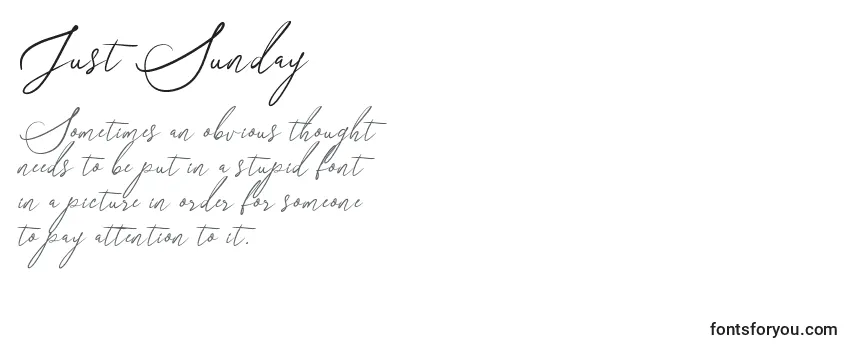 Just Sunday
Sometimes an obvious thought
needs to be put in a stupid font
in a picture in order for someone
to pay attention to it.
fontsforyou.com